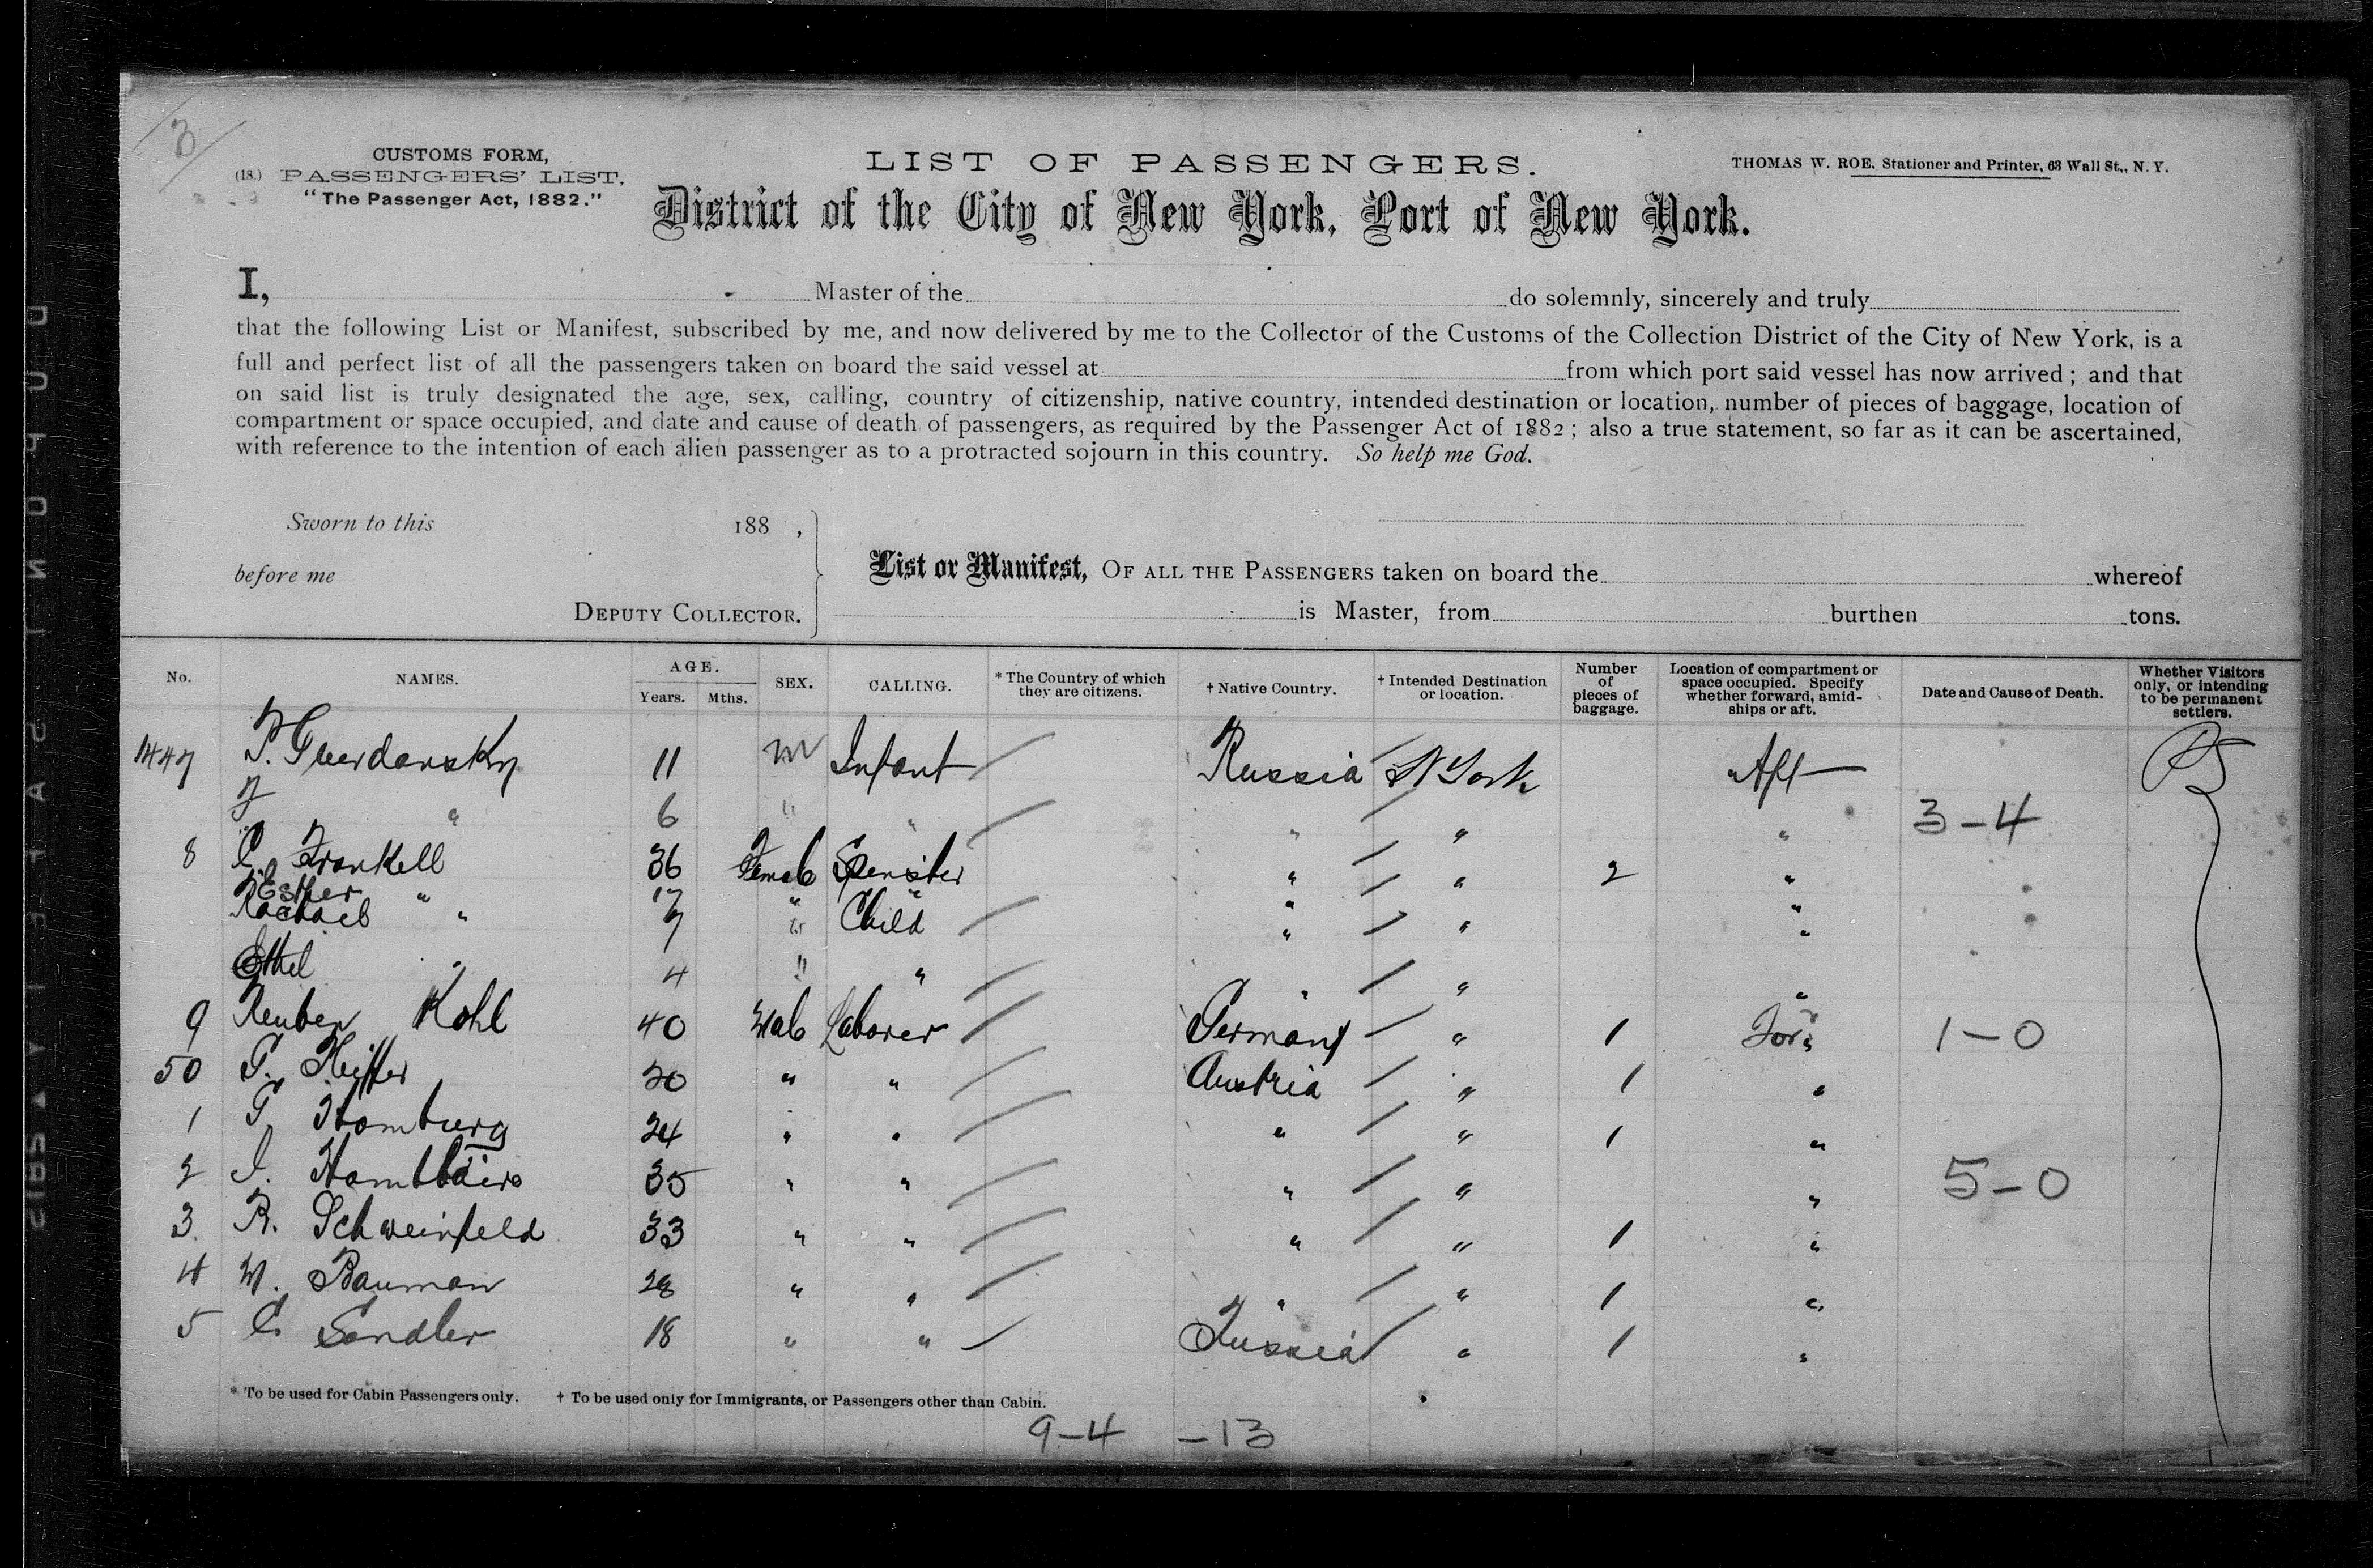 3
CUSTOMS FORM,
(18.) PASSENGERS' LIST,
"The Passenger Act, 1882."
LIST OF PASSENGERS.
THOMAS W. ROE, Stationer and Printer, 63 Wall St., N. Y.
District of the City of New York, Port of New York.
I, Master of the do solemnly, sincerely and truly
that the following List or Manifest, subscribed by me, and now delivered by me to the Collector of the Customs of the Collection District of the City of New York, is a
full and perfect list of all the passengers taken on board the said vessel at from which port said vessel has now arrived; and that
on said list is truly designated the age, sex, calling, country of citizenship, native country, intended destination or location, number of pieces of baggage, location of
compartment or space occupied, and date and cause of death of passengers, as required by the Passenger Act of 1882; also a true statement, so far as it can be ascertained,
with reference to the intention of each alien passenger as to a protracted sojourn in this country. So help me God.
Sworn to this 188 ,
before me
DEPUTY COLLECTOR.
List or Manifest, OF ALL THE PASSENGERS taken on board the whereof
is Master, from burthen tons.
No. NAMES. AGE. Years. Mths. SEX. CALLING. * The Country of which they are citizens. † Native Country. † Intended Destination or location. Number of pieces of baggage. Location of compartment or space occupied. Specify whether forward, amidships or aft. Date and Cause of Death. Whether Visitors only, or intending to be permanent settlers.
1447 11 m Infant Russia N York Aft PS
" 6 " " " " " 3-4
8 C. Frankell 36 Female Spinster " " 2 "
Esther " 17 " " " " "
Rachael " 7 " Child " " "
Ethel " 4 " " " " "
9 Reuben Kohl 40 Male Laborer Germany " 1 For 1-0
50 20 " " Austria " 1 "
1 Hamburg 24 " " " " 1 "
2 35 " " " " " 5-0
3. R. Schweinfeld 33 " " " " 1 "
4 Bauman 28 " " " " 1 "
5 C. Sandler 18 " " Russia " 1 "
* To be used for Cabin Passengers only. † To be used only for Immigrants, or Passengers other than Cabin.
9-4 -13